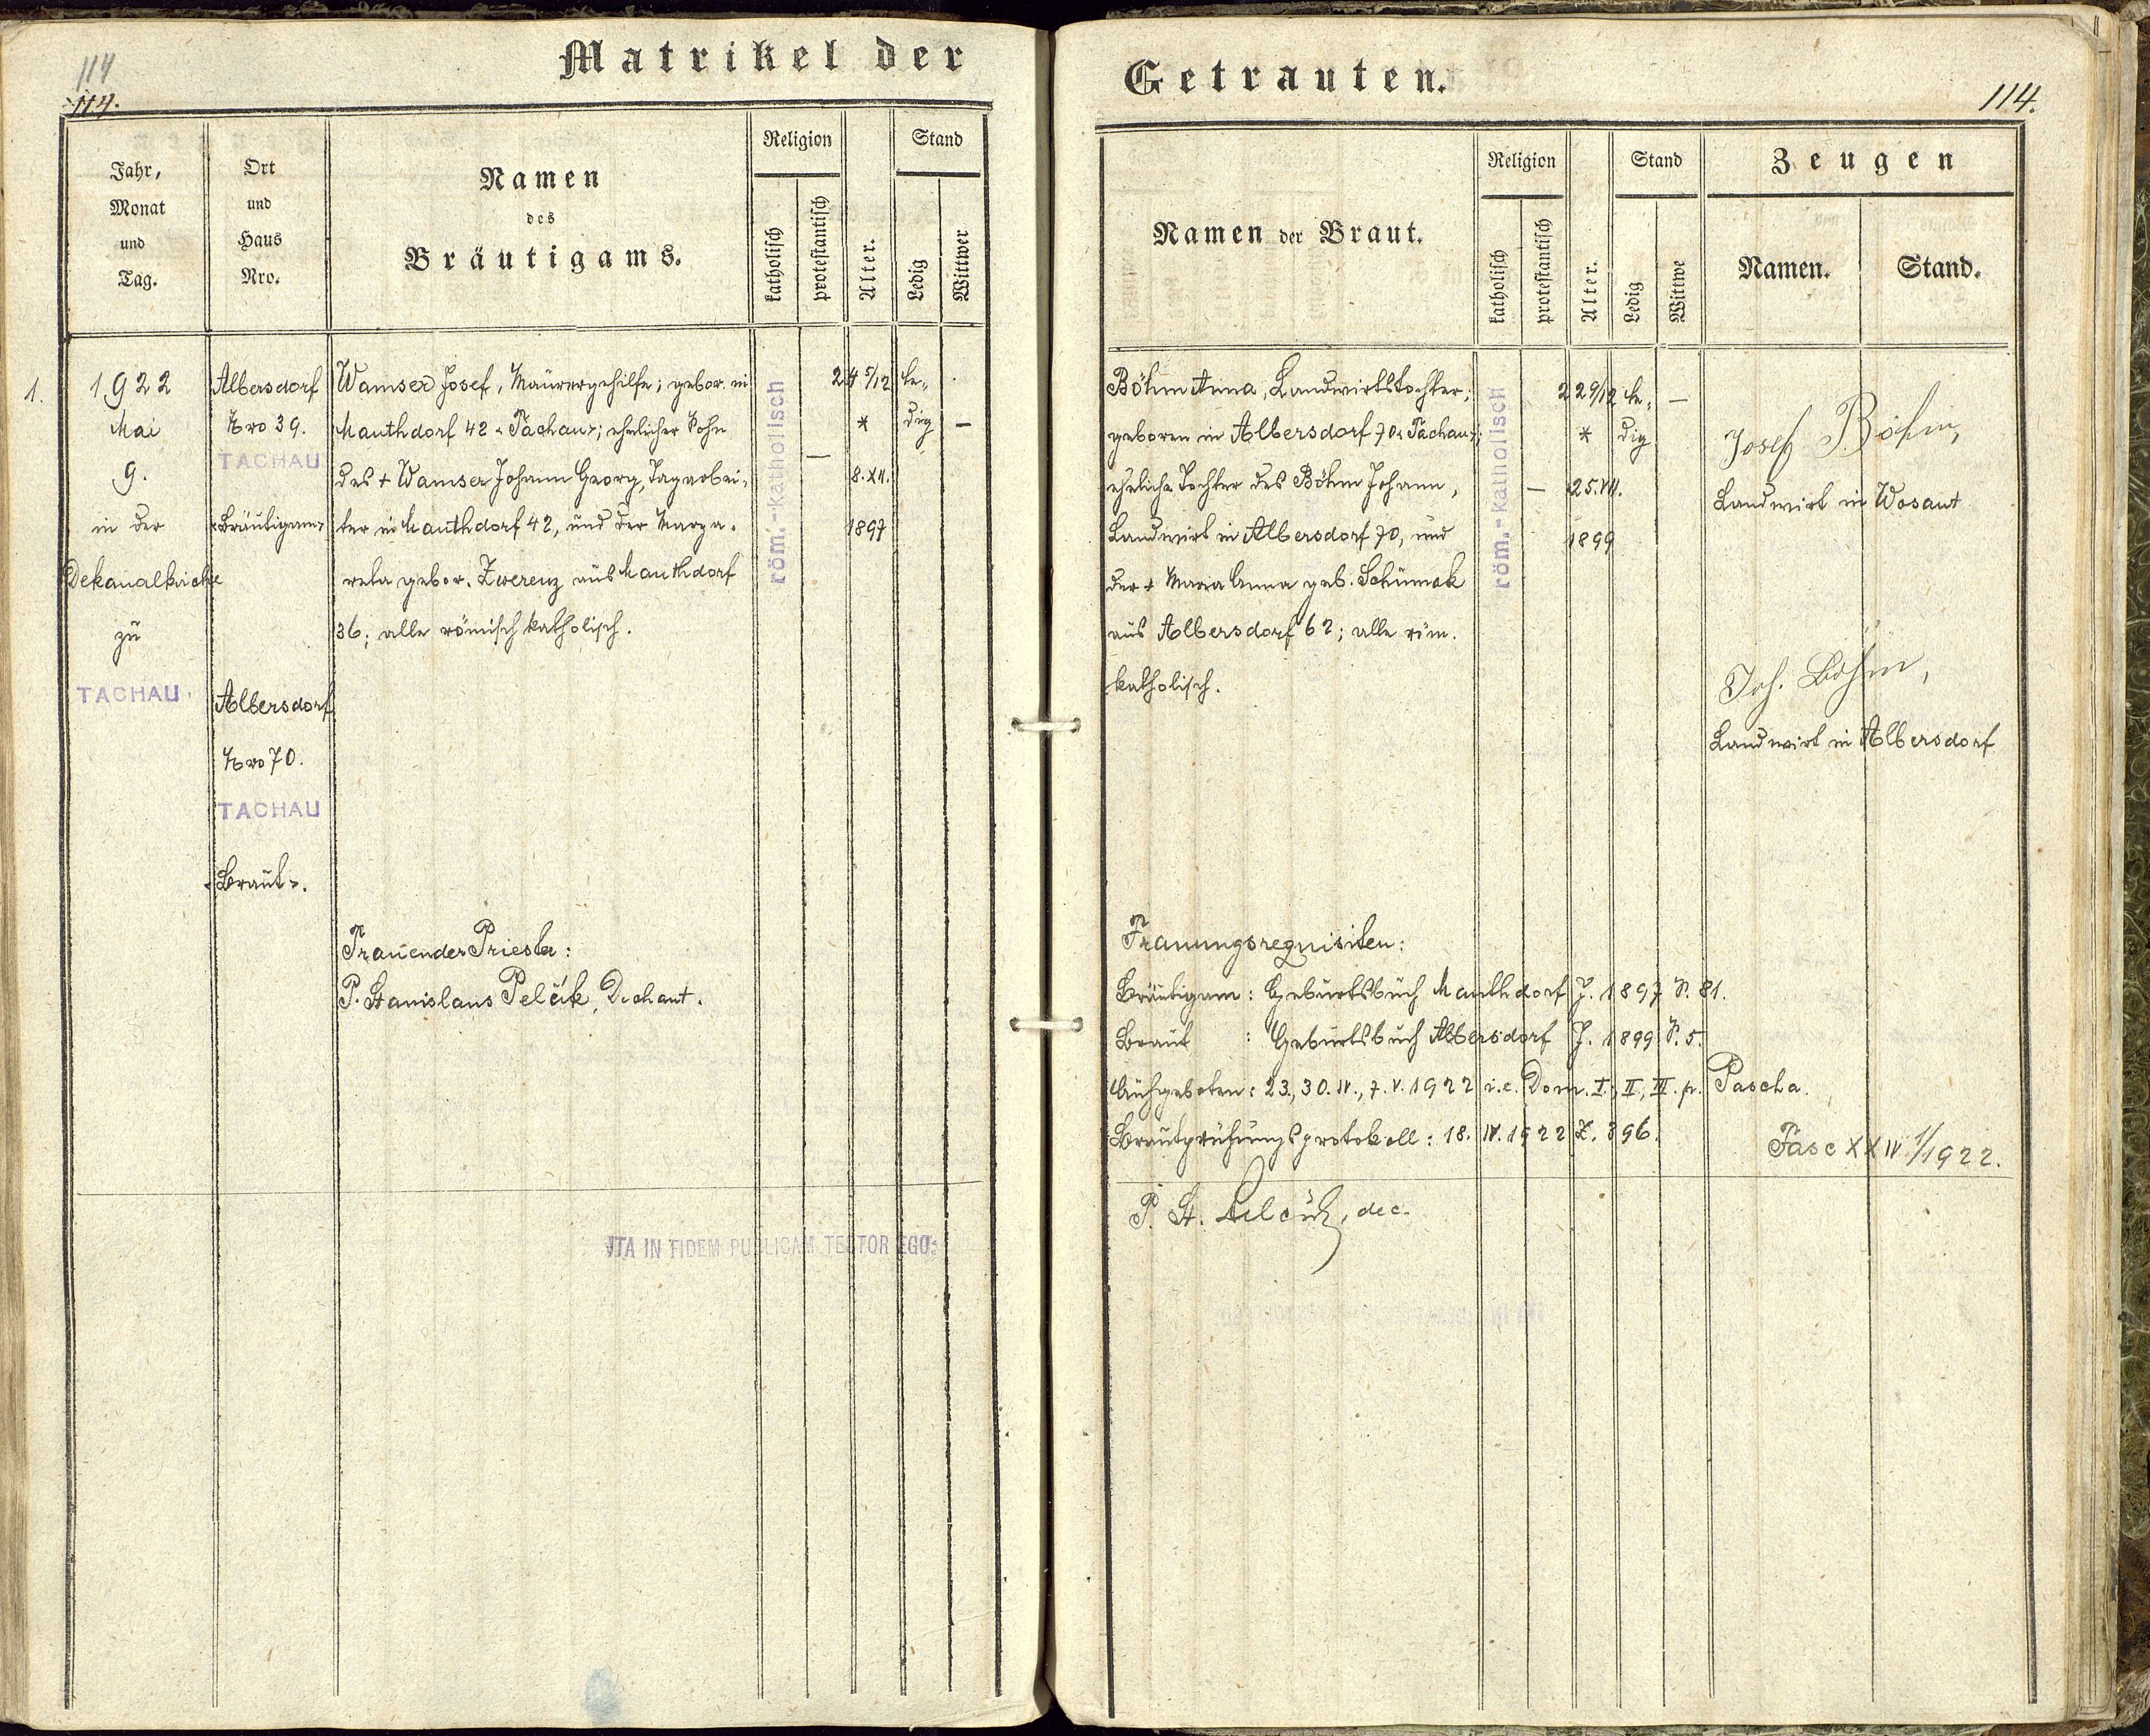 114
114.
Matrikel der
Jahr,
Monat
und
Tag.
Ort
und
Haus
Nro.
Namen
des
Bräutigams.
Religion
katholisch
protestantisch
Alter.
Stand
Ledig
Wittwer
1.
1922
Mai
9.
in der
Dekanalkirche
zu
TACHAU
Albersdorf
Nro 39.
TACHAU
<Bräutigam>
Albersdorf
Nro 70.
TACHAU
<Braut>.
Wamser Josef, Maurergehilfe; gebor. in
Mauthdorf 42 <Tachau>; ehelicher Sohn
des + Wamser Johann Georg, Tagarbei-
ter in Mauthdorf 42, und der Marga-
reta gebor. Zwerenz aus Mauthdorf
36; alle römisch katholisch.
röm.-katholisch
—
24 5/12
*
8.XII.
1897
le-
dig
—
Trauender Priester:
P. Stanislaus Pelčík, Dechant.
ITA IN FIDEM PUBLICAM TESTOR EGO:
Getrauten.
114.
Namen der Braut.
Religion
katholisch
protestantisch
Alter.
Stand
Ledig
Wittwe
Zeugen
Namen.
Stand.
Böhm Anna, Landwirtstochter;
geboren in Albersdorf 70 <Tachau>;
eheliche Tochter des Böhm Johann,
Landwirt in Albersdorf 70, und
der + Maria Anna geb. Schimak
aus Albersdorf 62; alle röm.
katholisch.
röm.-katholisch
—
22 9/12
*
25.VII.
1899
le-
dig
—
Josef Böhm,
Landwirt in Wosant
Joh. Böhm,
Landwirt in Albersdorf
Trauungsrequisiten:
Bräutigam: Geburtsbuch Mauthdorf J. 1897 S. 81.
Braut : Geburtsbuch Albersdorf J. 1899 S. 5.
Aufgeboten: 23., 30. IV., 7. V. 1922 i.e. Dom. I., II., III. p. Pascha.
Brautprüfungsprotokoll: 18. IV. 1922 Z. 396.
Fasc XXIV 1/1922.
P. St. Pelčík, dec.